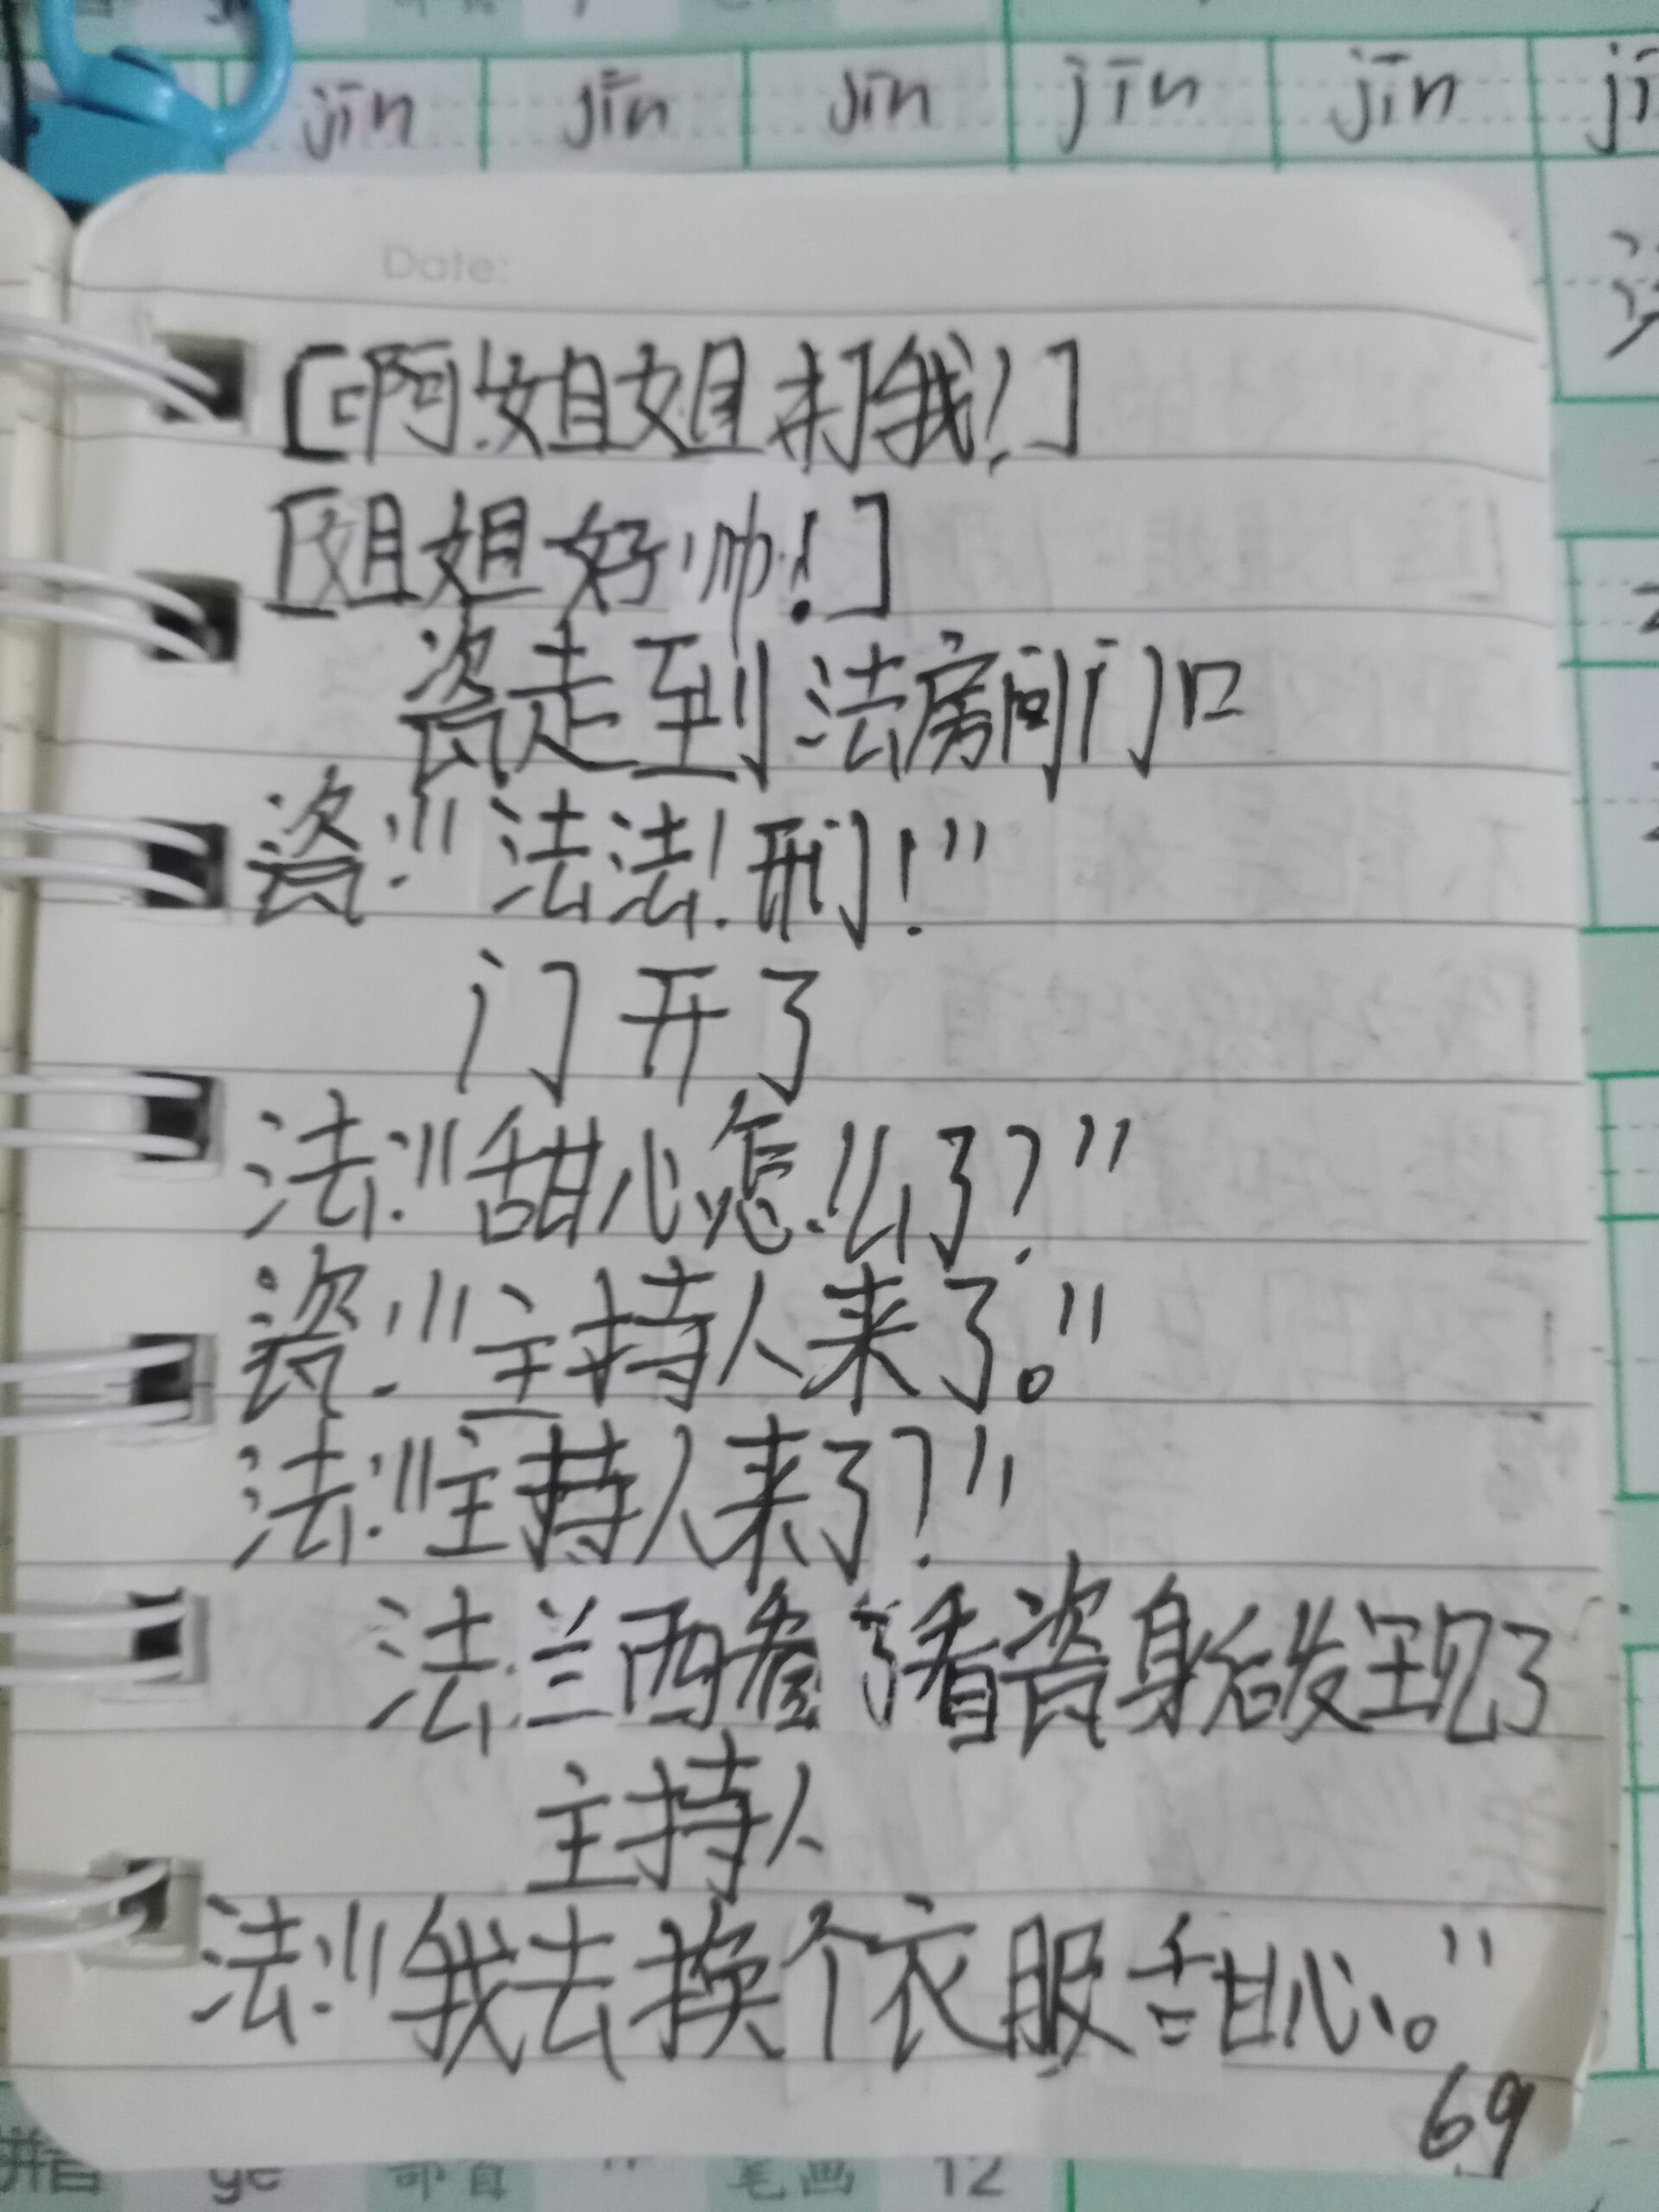 jīn jīn jīn jīn jīn jī
Date:
[啊姐姐打我!]
[姐姐好帅!]
瓷走到法房间门口
瓷:"法法!开门!"
门开了
法:"甜心怎么了?"
瓷:"主持人来了。"
法:"主持人来了?"
法兰西看了看瓷身后发现了
主持人
法:"我去换个衣服甜心。"
69
拼音 ye 部首 笔画 12